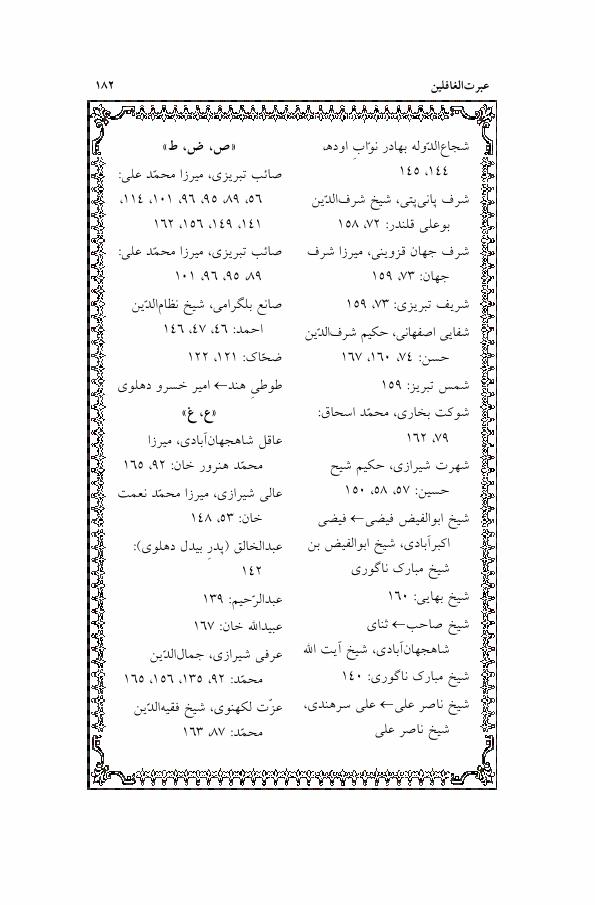 عبرت‌الغافلین
۱۸۲
شجاع‌الدّوله بهادر نوّابِ اوده،
۱٤٤، ۱٤٥
شرف پانی‌پتی، شیخ شرف‌الدّین
بوعلی قلندر: ۷۲، ۱٥۸
شرف جهان قزوینی، میرزا شرف
جهان: ۷۳، ۱٥۹
شریف تبریزی: ۷۳، ۱٥۹
شفایی اصفهانی، حکیم شرف‌الدّین
حسن: ۷٤، ۱٦۰، ۱٦۷
شمس تبریز: ۱٥۹
شوکت بخاری، محمّد اسحاق:
۷۹، ۱٦۲
شهرت شیرازی، حکیم شیح
حسین: ٥۷، ٥۸، ۱٥۰
شیخ ابوالفیض فیضی ← فیضی
اکبرآبادی، شیخ ابوالفیض بن
شیخ مبارک ناگوری
شیخ بهایی: ۱٦۰
شیخ صاحب ← ثنای
شاهجهان‌آبادی، شیخ آیت الله
شیخ مبارک ناگوری: ۱٤۰
شیخ ناصر علی ← علی سرهندی،
شیخ ناصر علی
«ص، ض، ط»
صائب تبریزی، میرزا محمّد علی:
٥٦، ۸۹، ۹٥، ۹٦، ۱۰۱، ۱۱٤،
۱٤۱، ۱٤۹، ۱٥٦، ۱٦۲
صائب تبریزی، میرزا محمّد علی:
۸۹، ۹٥، ۹٦، ۱۰۱
صانع بلگرامی، شیخ نظام‌الدّین
احمد: ٤٦، ٤۷، ۱٤٦
ضحّاک: ۱۲۱، ۱۲۲
طوطیِ هند ← امیر خسرو دهلوی
«ع، غ»
عاقل شاهجهان‌آبادی، میرزا
محمّد هنرور خان: ۹۲، ۱٦٥
عالی شیرازی، میرزا محمّد نعمت
خان: ٥۳، ۱٤۸
عبدالخالق (پدرِ بیدل دهلوی):
۱٤۲
عبدالرّحیم: ۱۳۹
عبیدالله خان: ۱٦۷
عرفی شیرازی، جمال‌الدّین
محمّد: ۹۲، ۱۳٥، ۱٥٦، ۱٦٥
عزّت لکهنوی، شیخ فقیه‌الدّین
محمّد: ۸۷، ۱٦۳